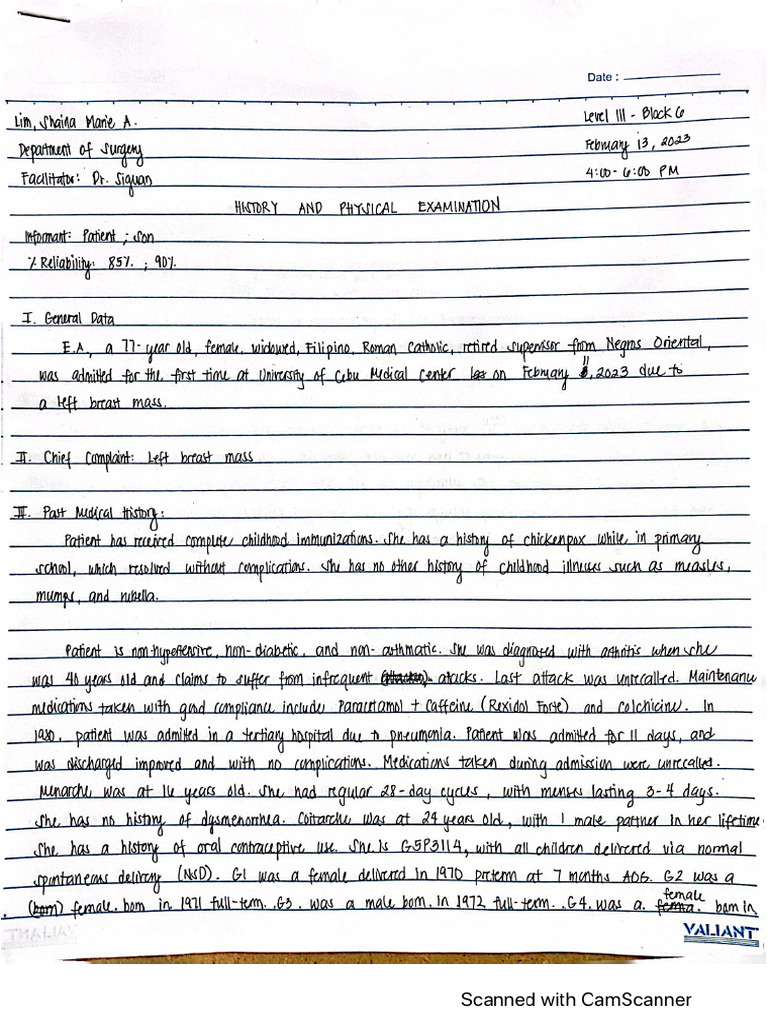 Date :
Lim, Shaina Marie A.
Level III - Block 6
Department of Surgery
February 13, 2023
Facilitator: Dr. Siguan
4:00 - 6:00 PM
HISTORY AND PHYSICAL EXAMINATION
Informant: Patient ; son
% Reliability: 85% ; 90%
I. General Data
E.A., a 77-year old, female, widowed, Filipino, Roman Catholic, retired supervisor from Negros Oriental,
was admitted for the first time at University of Cebu Medical Center on February 11, 2023 due to
a left breast mass.
II. Chief Complaint: Left breast mass
III. Past Medical History:
Patient has received complete childhood immunizations. She has a history of chickenpox while in primary
school, which resolved without complications. She has no other history of childhood illnesses such as measles,
mumps, and rubella.
Patient is non-hypertensive, non-diabetic, and non-asthmatic. She was diagnosed with arthritis when she
was 40 years old and claims to suffer from infrequent attacks. Last attack was unrecalled. Maintenance
medications taken with good compliance include Paracetamol + Caffeine (Rexidol Forte) and Colchicine. In
1980, patient was admitted in a tertiary hospital due to pneumonia. Patient was admitted for 11 days, and
was discharged improved and with no complications. Medications taken during admission were unrecalled.
Menarche was at 16 years old. She had regular 28-day cycles, with menses lasting 3-4 days.
She has no history of dysmenorrhea. Coitarche was at 24 years old, with 1 male partner in her lifetime.
She has a history of oral contraceptive use. She is G5P3114, with all children delivered via normal
spontaneous delivery (NSD). G1 was a female delivered in 1970 preterm at 7 months AOG. G2 was a
female born in 1971 full-term. G3 was a male born in 1972 full-term. G4 was a female born in
VALIANT
Scanned with CamScanner